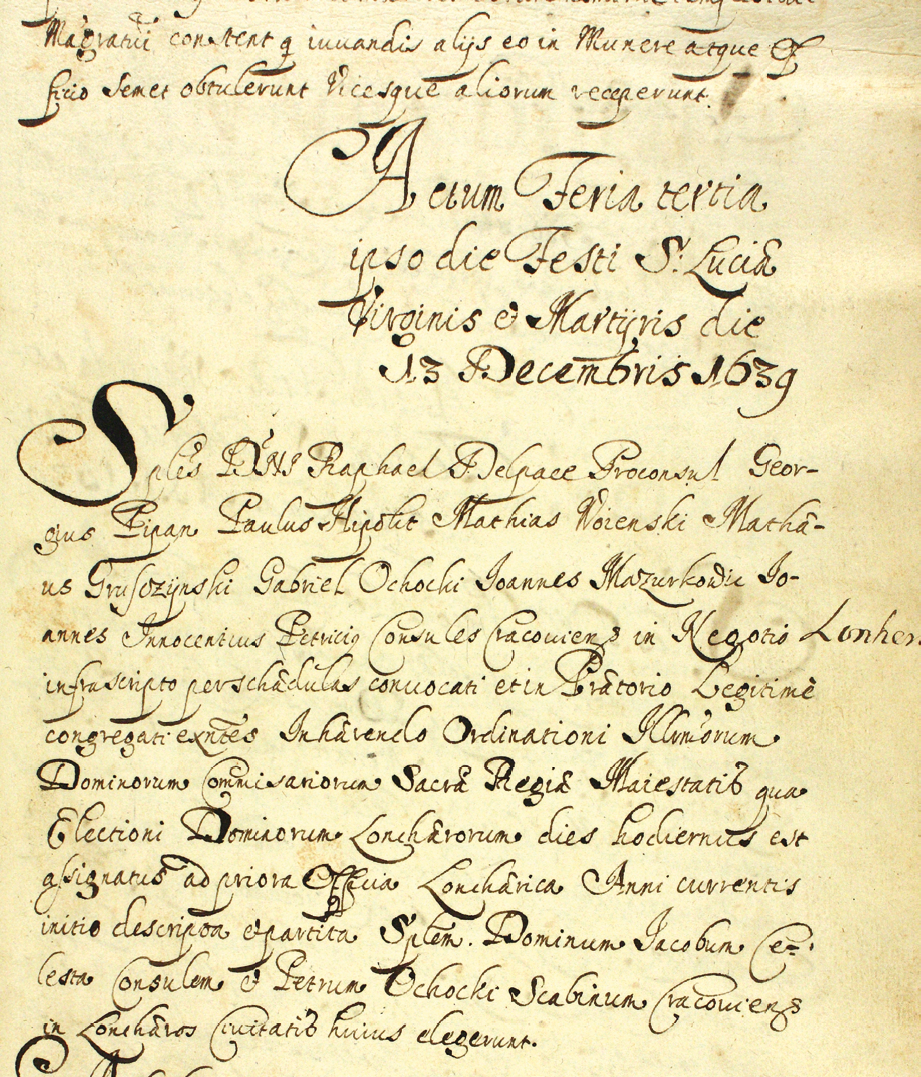 Magratui constent q iuuandis alijs eo in Munere atque Of
ficio Semet obtulerunt Vicesque aliorum receperunt.
Actum Feria tertia
ipso die Festi S. Luciæ
Virginis et Martyris die
13 Decembris 1639
Sples DNI Raphael Delpace Proconsul Geor-
gius Pipan Paulus Hipolit Mathias Voienski Mathæ-
us Gruszynski Gabriel Ochocki Joannes Mazurkowic Jo-
annes Innocentius Petricius Consules Cracouiens in Negotio Lonher
infrascripto per schædulas convocati et in Prætorio Legitime
congregati exntes Inhærendo Ordinationi Illmorum
Dominorum Commisariorum Sacræ Regiæ Maiestatis qua
Electioni Dominorum Lonchærorum dies hodiernus est
assignatus ad priora Officia Lonchærica Anni currentis
initio descripta et partita Splem. Dominum Jacobum Ce-
lesta Consulem et Petrum Ochocki Scabinum Cracouiens
in Lonchæros Ciuitatis huius elegerunt.